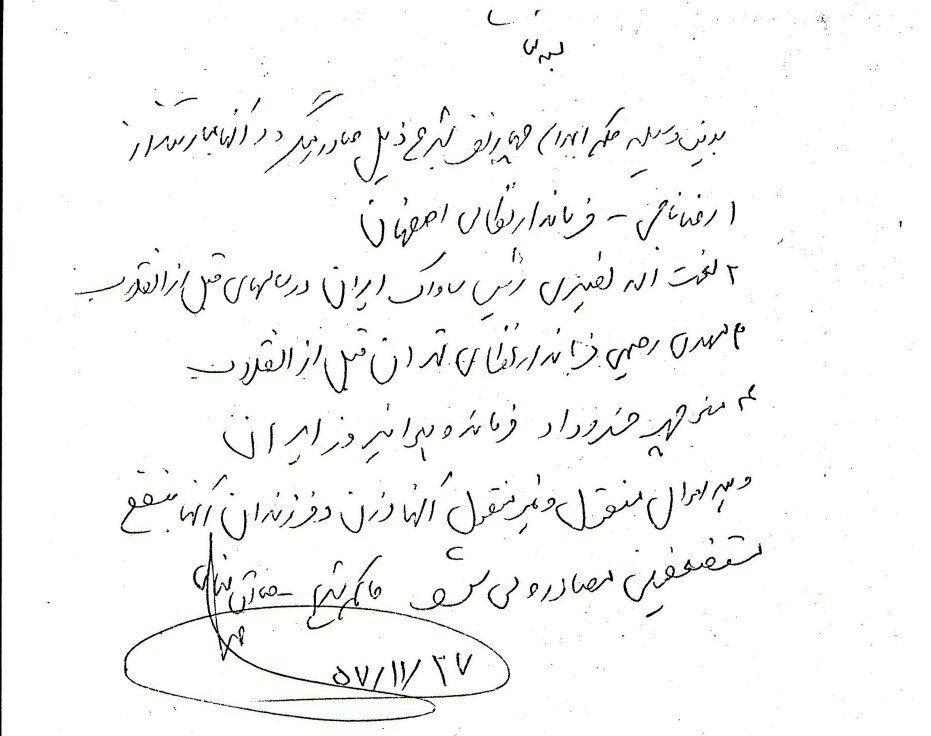 بسمه تعالی
بدین وسیله حکم اعدام چهار نفر بشرح ذیل صادر میگردد و آنها عبارتند از
۱ رضا ناجی – فرماندار نظامی اصفهان
۲ نعمت اله نصیری رئیس ساواک ایران در سالهای قبل از انقلاب
۳ مهدی رحیمی فرماندار نظامی تهران قبل از انقلاب
۴ منوچهر خسروداد فرمانده هوانیروز ایران
و همه اموال منقول و غیر منقول آنها و زن و فرزندان آنها بنفع
مستضعفین مصادره می شود حاکم شرع – صادق خلخالی
۵۷/۱۱/۲۷